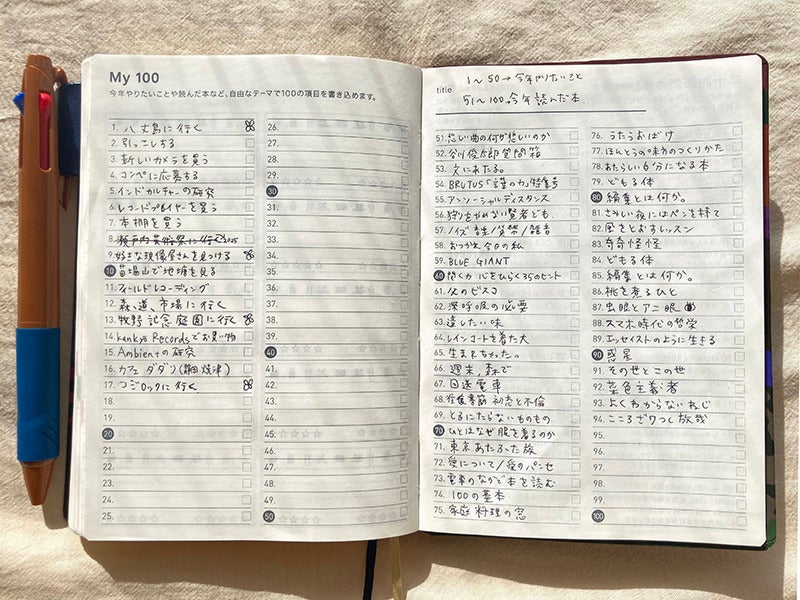 My 100
今年やりたいことや読んだ本など、自由なテーマで100の項目を書き込めます。
1. 八丈島に行く
2. 引っこしする
3. 新しいカメラを買う
4. コンペに応募する
5. インドカルチャーの研究
6. レコードプレイヤーを買う
7. 本棚を買う
8. 瀬戸内芸術祭に行く 2025
9. 好きな現像屋さんを見つける
10 苗場山で地塘を見る
11. フィールドレコーディング
12. 森、道、市場に行く
13. 牧野記念庭園に行く
14. kankyo Recordsでお買い物
15. Ambientの研究
16. カフェ ダダリ(静岡 焼津)
17. コジロックに行く
18.
19.
20
21.
22.
23.
24.
25.
26.
27.
28.
29.
30
31.
32.
33.
34.
35.
36.
37.
38.
39.
40
41.
42.
43.
44.
45.
46.
47.
48.
49.
50
title
1〜50→今年やりたいこと
51〜100→今年読んだ本
51. 悲しい曲の何が悲しいのか
52. 谷川俊太郎質問箱
53. 文にあたる。
54. BRUTUS「謹の力」特集号
55. アンソーシャルディスタンス
56. 狩りをやめない賢者ども
57. ノイズ 
58. おつかれ、今日の私
59. BLUE GIANT
60 聞く力 心をひらく35のヒント
61. 父のビスコ
62. 深呼吸の必要
63. 違したい味
64. レインコートを着た犬
65. 生まれちゃった。
66. 週末、森で
67. 回送電車
68. 初恋と不倫
69. とるにたらないものもの
70 ひとはなぜ服を着るのか
71. 東京あたふた族
72. 愛について/愛のパンセ
73. 電車のなかで本を読む
74. 100の基本
75. 家庭料理の窓
76. うたうおばけ
77. ほんとうの味方のつくりかた
78. あたらしい自分になる本
79. どもる体
80 編集とは何か。
81. さみしい夜にはペンを持て
82. 風をとおすレッスン
83. 奇奇怪怪
84. どもる体
85. 編集とは何か。
86. 桃を煮るひと
87. 虫眼とアニ眼
88. スマホ時代の哲学
89. エッセイストのように生きる
90 惑星
91. その世とこの世
92. 菜色主義者
93. よくわからないねじ
94. こころざわつく放哉
95.
96.
97.
98.
99.
100